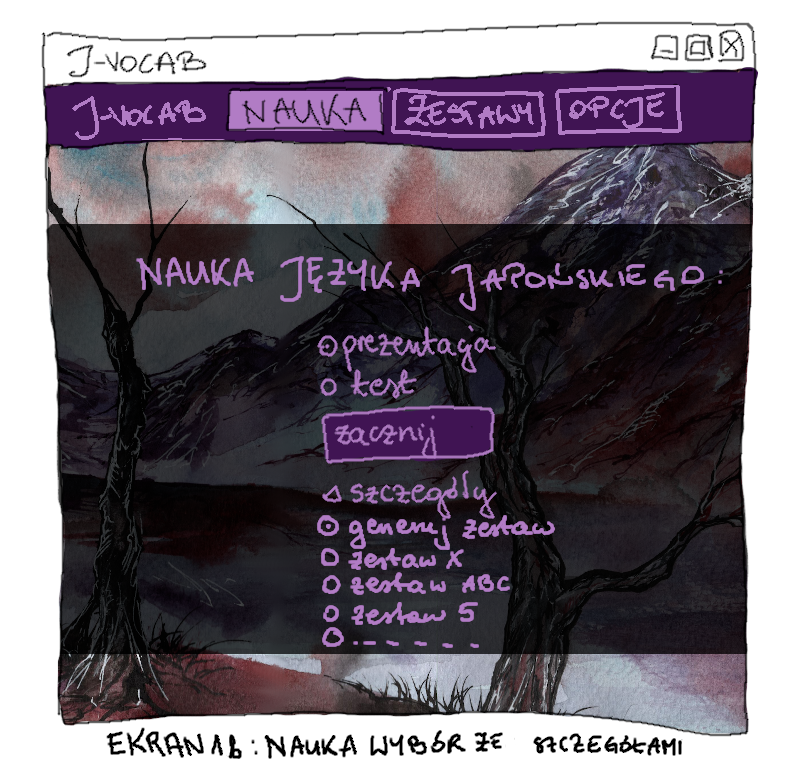 J-VOCAB
J-VOCAB NAUKA ZESTAWY OPCJE
NAUKA JĘZYKA JAPOŃSKIEGO:
prezentacja
test
zacznij
szczegóły
generuj zestaw
zestaw X
zestaw ABC
zestaw 5
EKRAN 1B: NAUKA WYBÓR ZE SZCZEGÓŁAMI